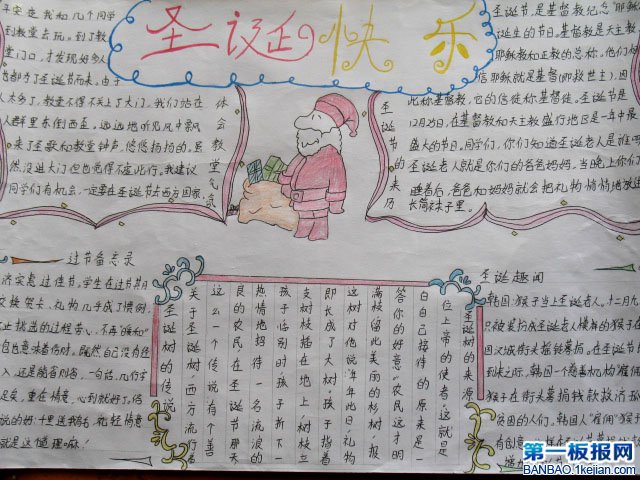 圣诞快乐
平安夜我和几个同学
到教堂去玩。到了教
堂门口,才发现好多人
也都为了圣诞节而来,由于
人太多了,教堂不得不关上了大门,我们站在
人群里东倒西歪。远远地听见风中飘
来了圣歌和教堂钟声,悠悠扬扬的,虽
然没进大门但也觉得不虚此行。我建议
同学们有机会,一定要在圣诞节去西方国家
体会教堂气氛
圣诞节的来历
圣诞节是基督教纪念耶稣
诞生的节日。基督教是天主教
耶稣教和正教的总称。他们
信耶稣就是基督(即救世主),因
此称基督教,它的信徒称基督徒。圣诞节是
12月25日,在基督教和天主教盛行地区是一年中最
盛大的节日。同学们,你们知道圣诞老人是谁
圣诞老人就是你们的爸爸妈妈,当晚上你们
睡着后,爸爸和妈妈就会把礼物悄悄地放进
长筒袜子里。
过节备忘录
济实惠过佳节,学生在过节期
交换贺卡、礼物几乎成了惯例,
包也意味着伤财。既然自己没有经
入,还是能省则省。一句话,几何学
足矣,重在情意,心到就好了。俗
说的好:千里送鹅毛,礼轻情意
就是这道理嘛!
圣诞树的来源
位上帝的使者,这就是
白自己接待的原来是一
答你的好意。农民这才明
满枝,留此美丽的杉树,报
这树对他说:年年此日,礼物
即长成了大树,孩子指着
支树枝插在地上,树枝立
孩子临别时,孩子折下一
热情地招待一名流浪的
良的农民在圣诞节那天
这么一个传说:有个善
关于圣诞树,西方流行
圣诞树的传说
圣诞趣闻
韩国:猴子当上圣诞老人,十二月九
只被装扮成圣诞老人模样的猴子在
国汉城街头摇铃募捐。在圣诞节
到来之际,韩国一个慈善机构雇佣
猴子在街头募捐钱款救济孤
贫困的人们。韩国人"雇佣"猴子
第一板报网
BANBAO.1kejian.com